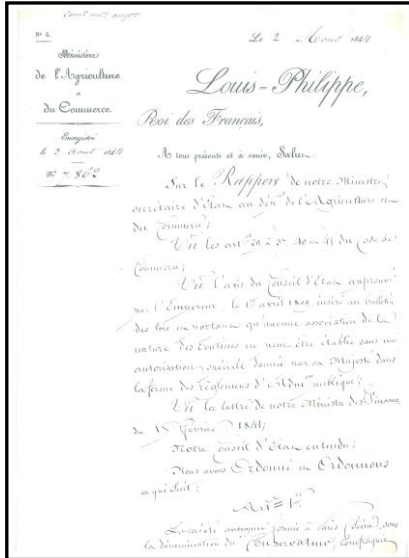 N° 2.
Le 2 Août 1844
Ministère
de l'Agriculture
et
du Commerce.
Enregistré
le 3 Août 1844
N° 7,862
Louis-Philippe,
Roi des Français,
A tous présents et à venir, Salut.
Sur le Rapport de notre Ministre
secrétaire d'État au dép.t de l'Agriculture et
du Commerce;
Vu les art.s 29 à 37, 40 et 45 du Code de
Commerce;
Vu l'avis du Conseil d'État approuvé
par l'Empereur le 1er avril 1809 inséré au bulletin
des lois et portant qu'aucune association de la
nature des tontines ne peut être établie sans une
autorisation spéciale donnée par sa Majesté dans
la forme des règlemens d'Adm.on publique;
Vu la lettre de notre Ministre des Finances
du 15 février 1841;
Notre Conseil d'État entendu;
Nous avons Ordonné et Ordonnons
ce qui suit:
Art. 1er
La société anonyme formée à Paris (Seine), sous
la dénomination du Conservateur, compagnie